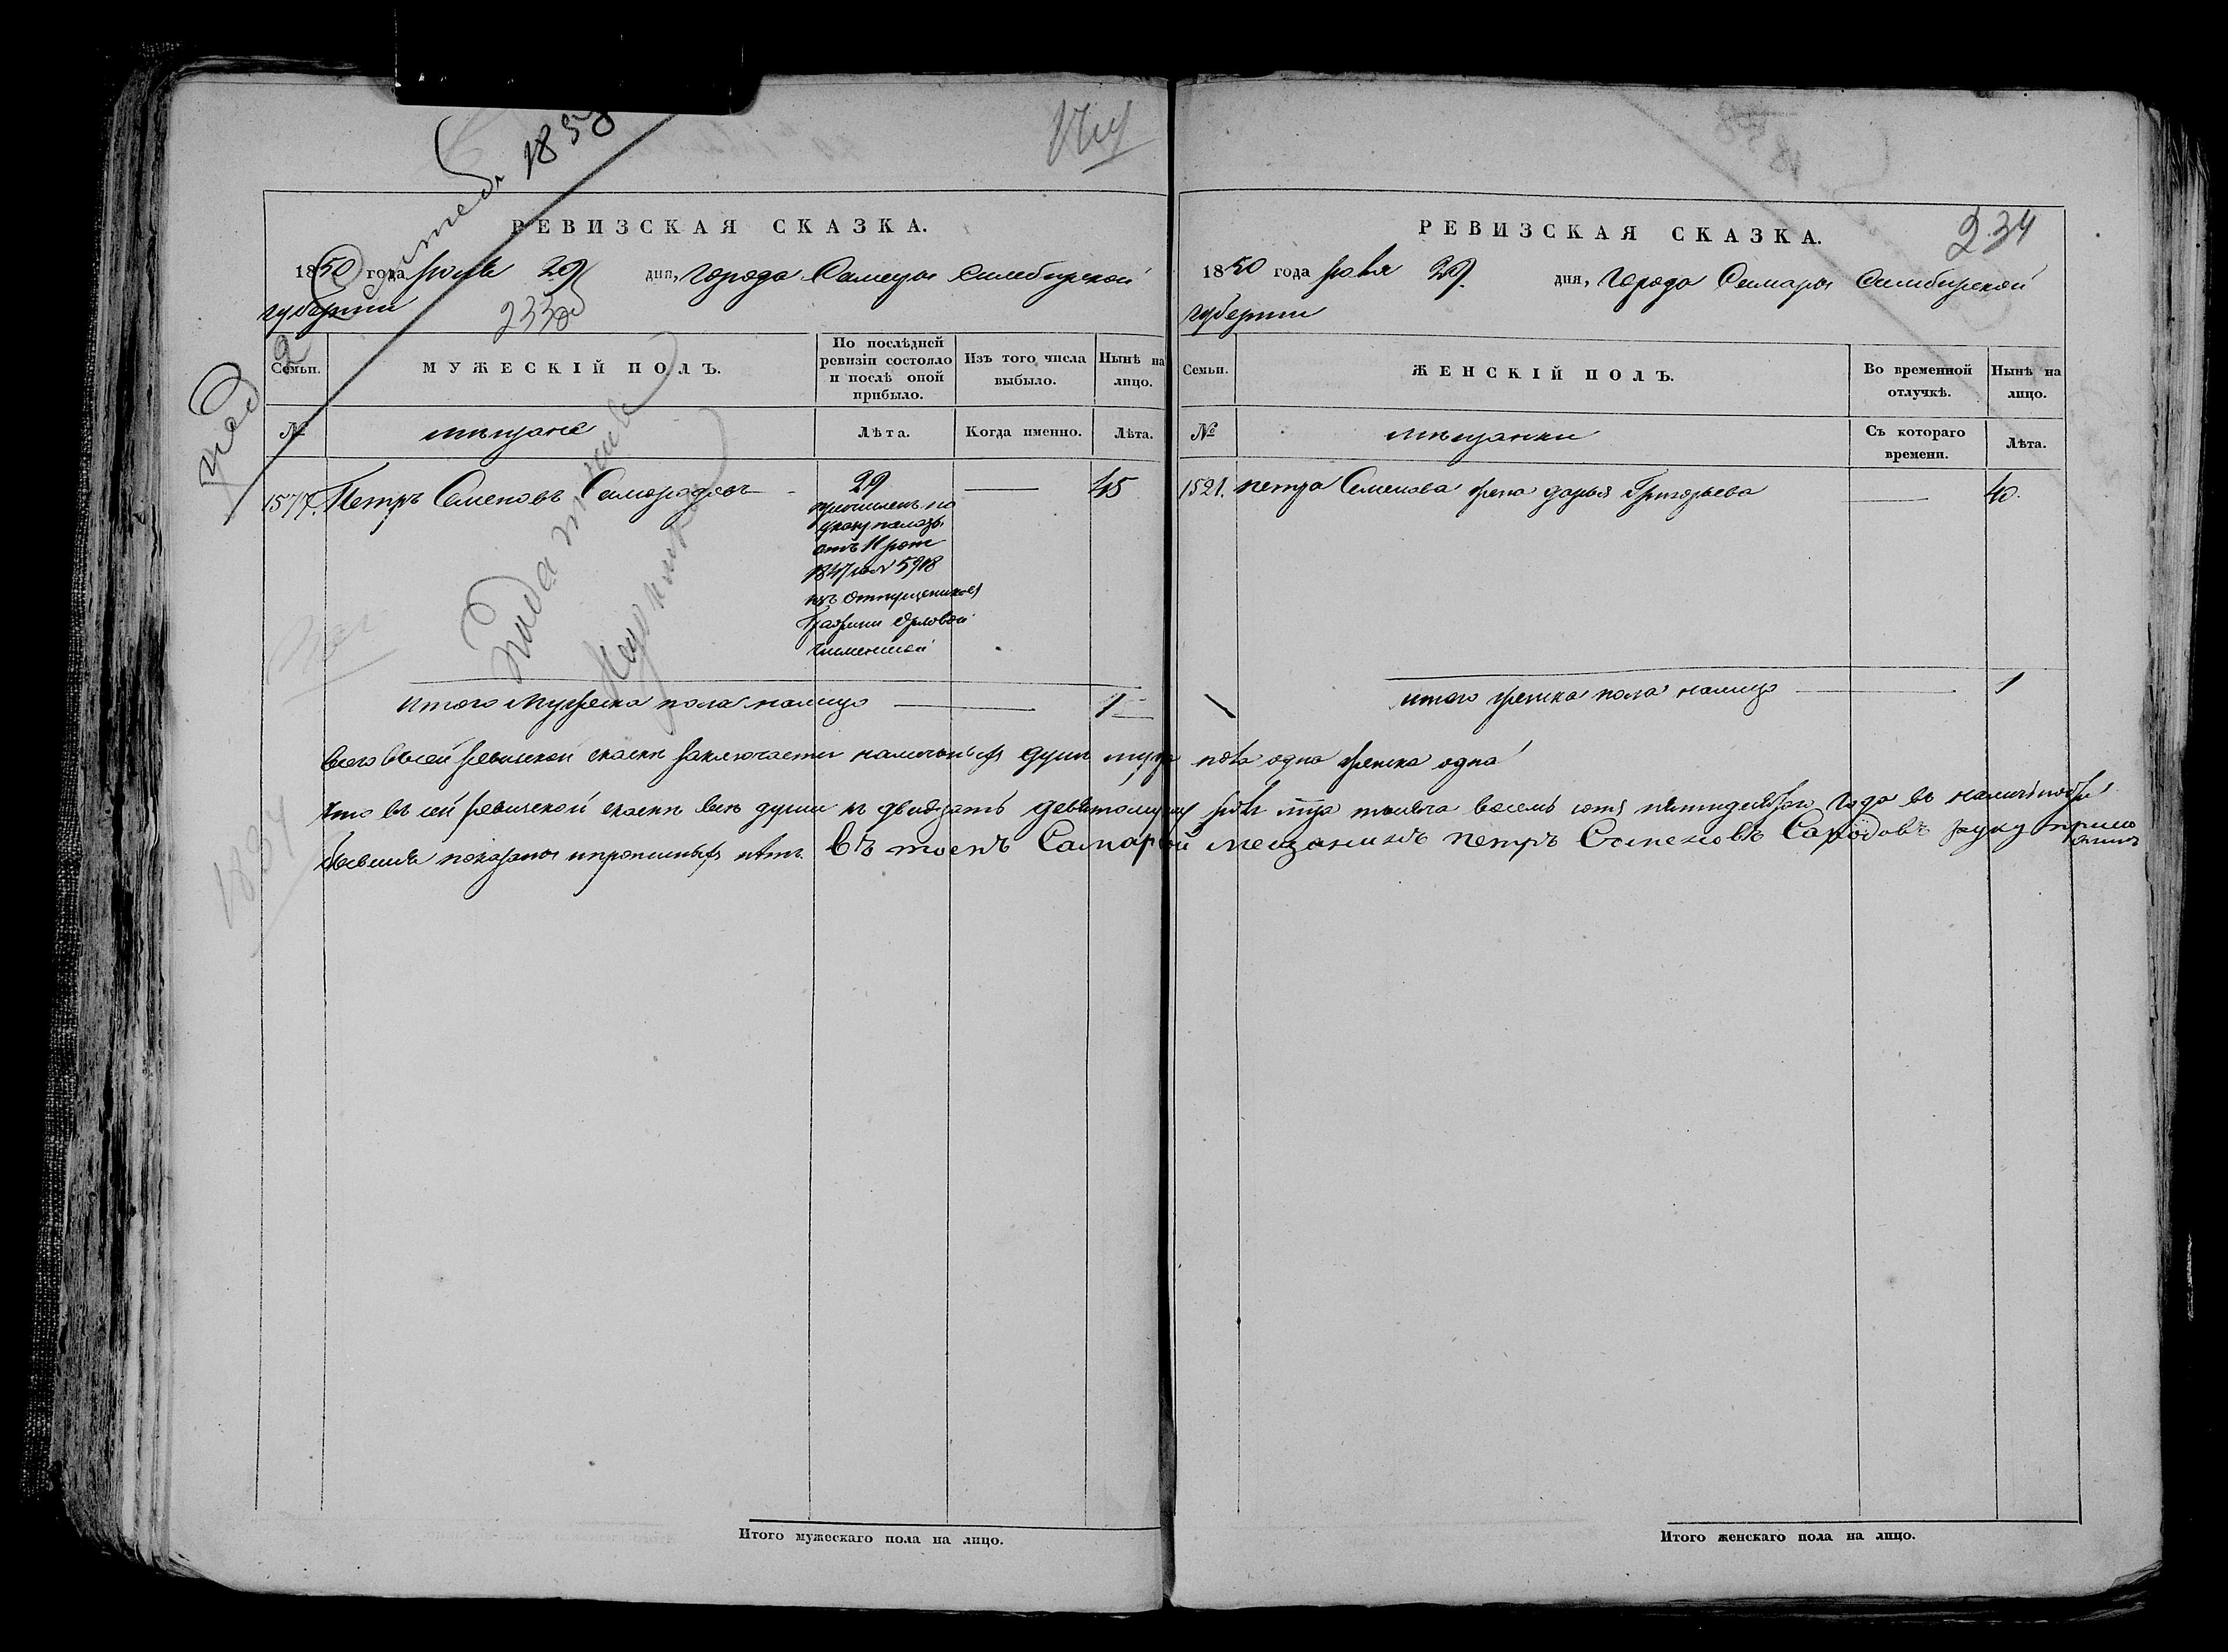 1850
234
РЕВИЗСКАЯ СКАЗКА.
1850 года юля 29 дня, города Самары Симбирской
губернии
233об
Семьи.
МУЖЕСКІЙ ПОЛЪ.
По послѣдней
ревизіи состояло
и послѣ оной
прибыло.
Изъ того числа
выбыло.
Нынѣ на
лицо.
№
мѣщане
Лѣта.
Когда именно.
Лѣта.
1577. Петръ Семеновъ
29
45
причисленъ по
указу палаты
отъ 11
1847 № 5918
изъ отпущенниковъ
Графини Орловой
Чесменской
итого мужеска пола налицо 1
РЕВИЗСКАЯ СКАЗКА.
1850 года юля 29. дня, города Самары Симбирской
губернии
Семьи.
ЖЕНСКІЙ ПОЛЪ.
Во временной
отлучкѣ.
Нынѣ на
лицо.
№
мѣщанки
Съ котораго
времени.
Лѣта.
1521. петра Семенова жена дарья Григорьева
40.
итого женска пола налицо 1
всего въсей ревиской скаске заключается наличныхъ душъ муже пола одна женска одна
что въ сей ревиской скаске все души къ двадцать девятому юля тысяча восемь сотъ пятидесятаго года въ
бывшие показаны ипрописныхъ нѣтъ. Въ томъ Самарской мещанинъ петръ Семеновъ руку
Итого мужескаго пола на лицо.
Итого женскаго пола на лицо.